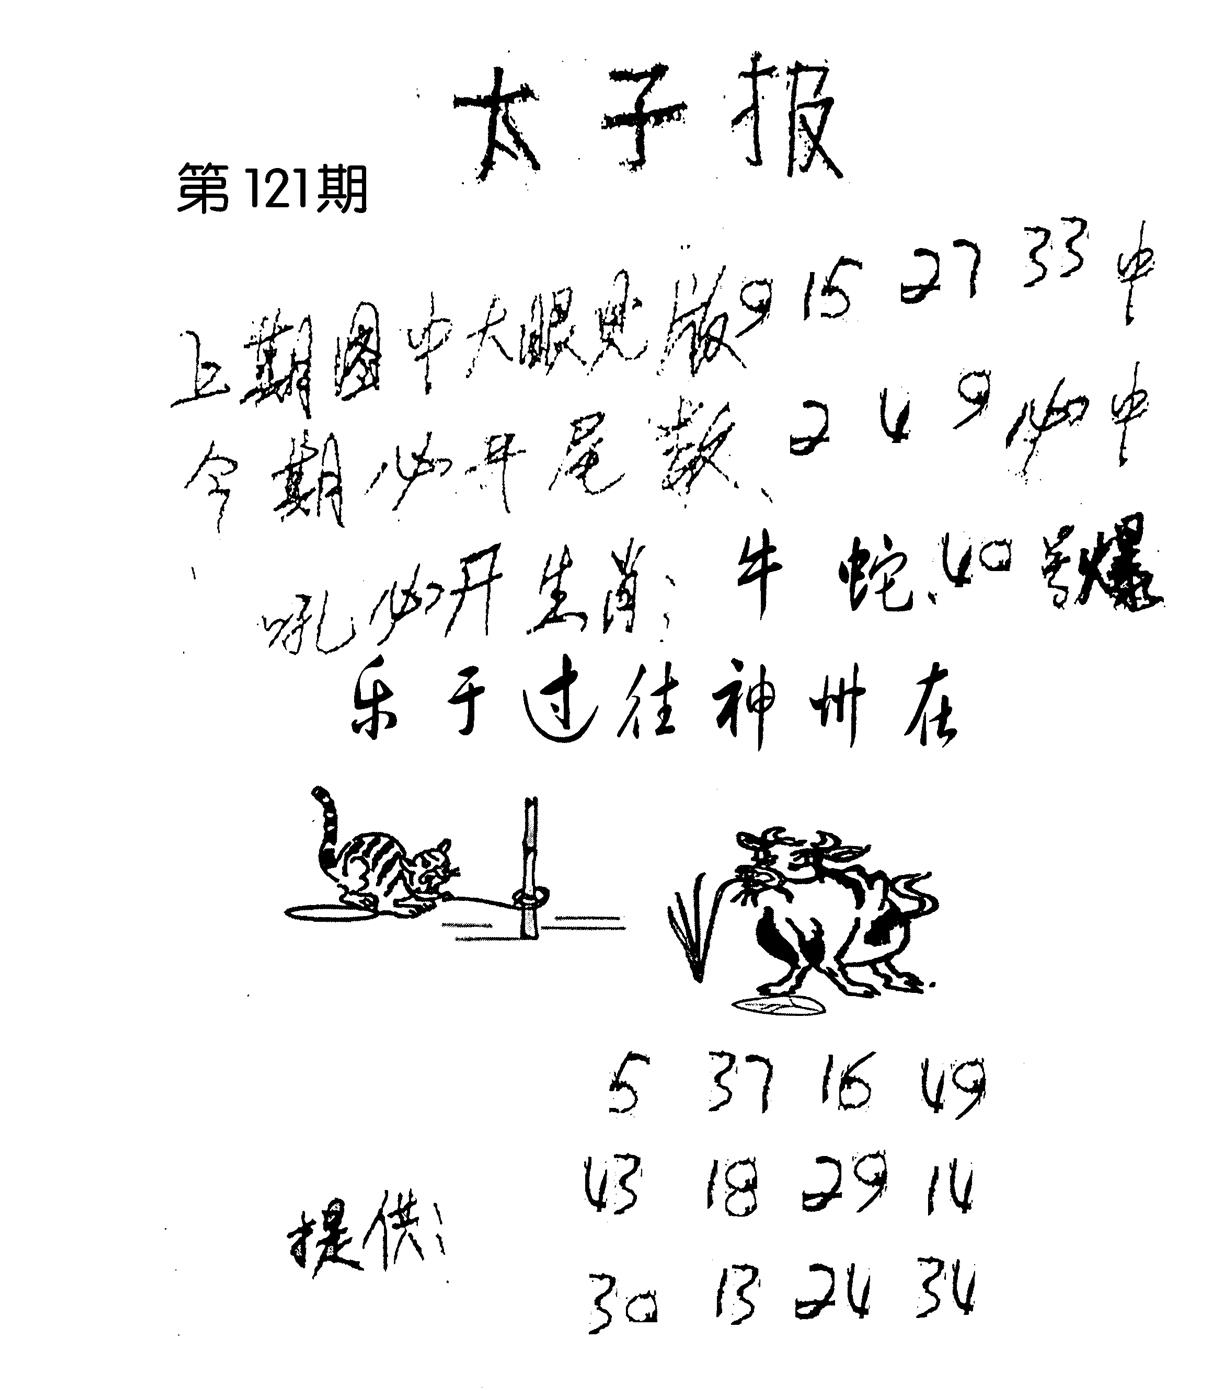 太子报
第121期
上期图中大眼见版9 15 27 33中
今期必开尾数、2 4 9必中
吼必开生肖：牛 蛇、40号爆
乐于过往神州在
5 37 16 49
43 18 29 14
提供：
30 13 24 34